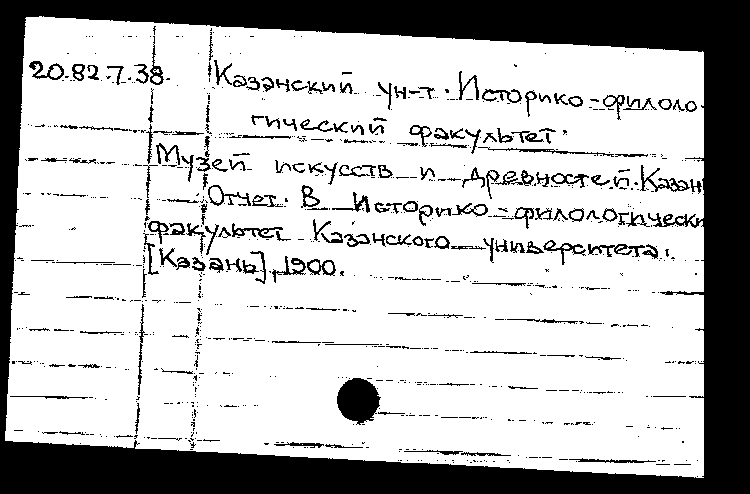 20.82.7.38. Казанский ун-т. Историко-филоло-
гический факультет.
Музей искусств и древностей. Казан
Отчет. В Историко-филологически
факультет Казанского университета.
[Казань], 1900.